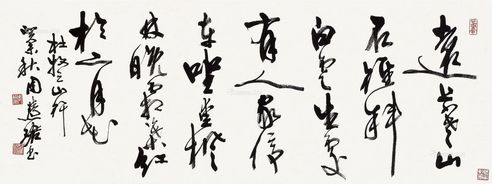 遠上寒山
石徑斜
白雲生處
有人家停
車坐愛楓
林晚霜葉紅
於二月花
杜牧之山行
秋周慧珺書